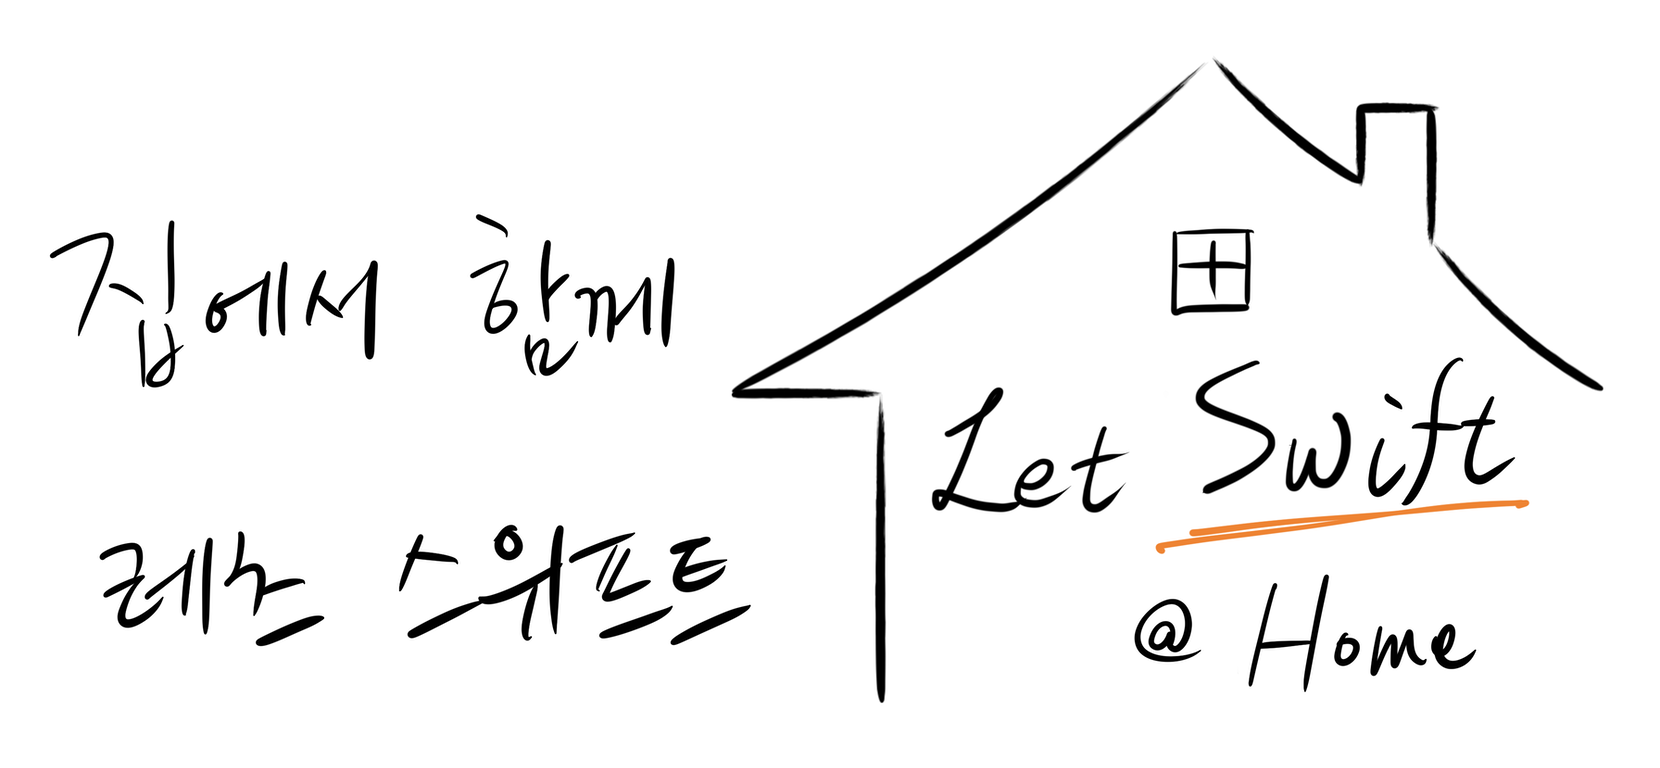 집에서 함께
레츠 스위프트
Let Swift
@ Home